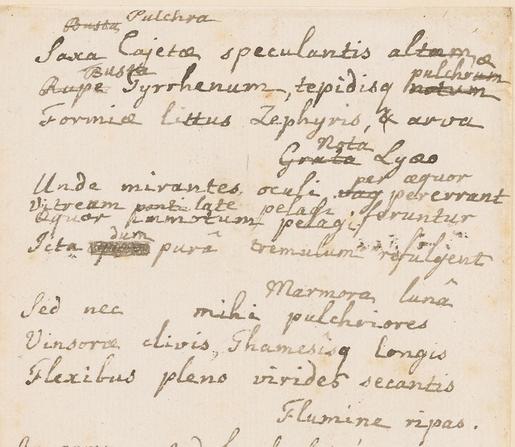 Busta Pulchra
Saxa Cajetæ speculantis altum
Busta pulchrum
Rupe Tyrrhenum, tepidisq notum
Formiæ littus Zephyris, & arva
Nota
Grata Lyæo
per æquor
Unde mirantes oculi vag pererrant
Vitream ponti late pelagi, feruntur
Æquor immotum pelagi,
dum
Icta purâ tremulum refulgent
Marmora lunâ
Sed nec mihi pulchriores
Vinsoræ clivis, Thamesisq longis
Flexibus pleno virides secantis
Flumine ripas.